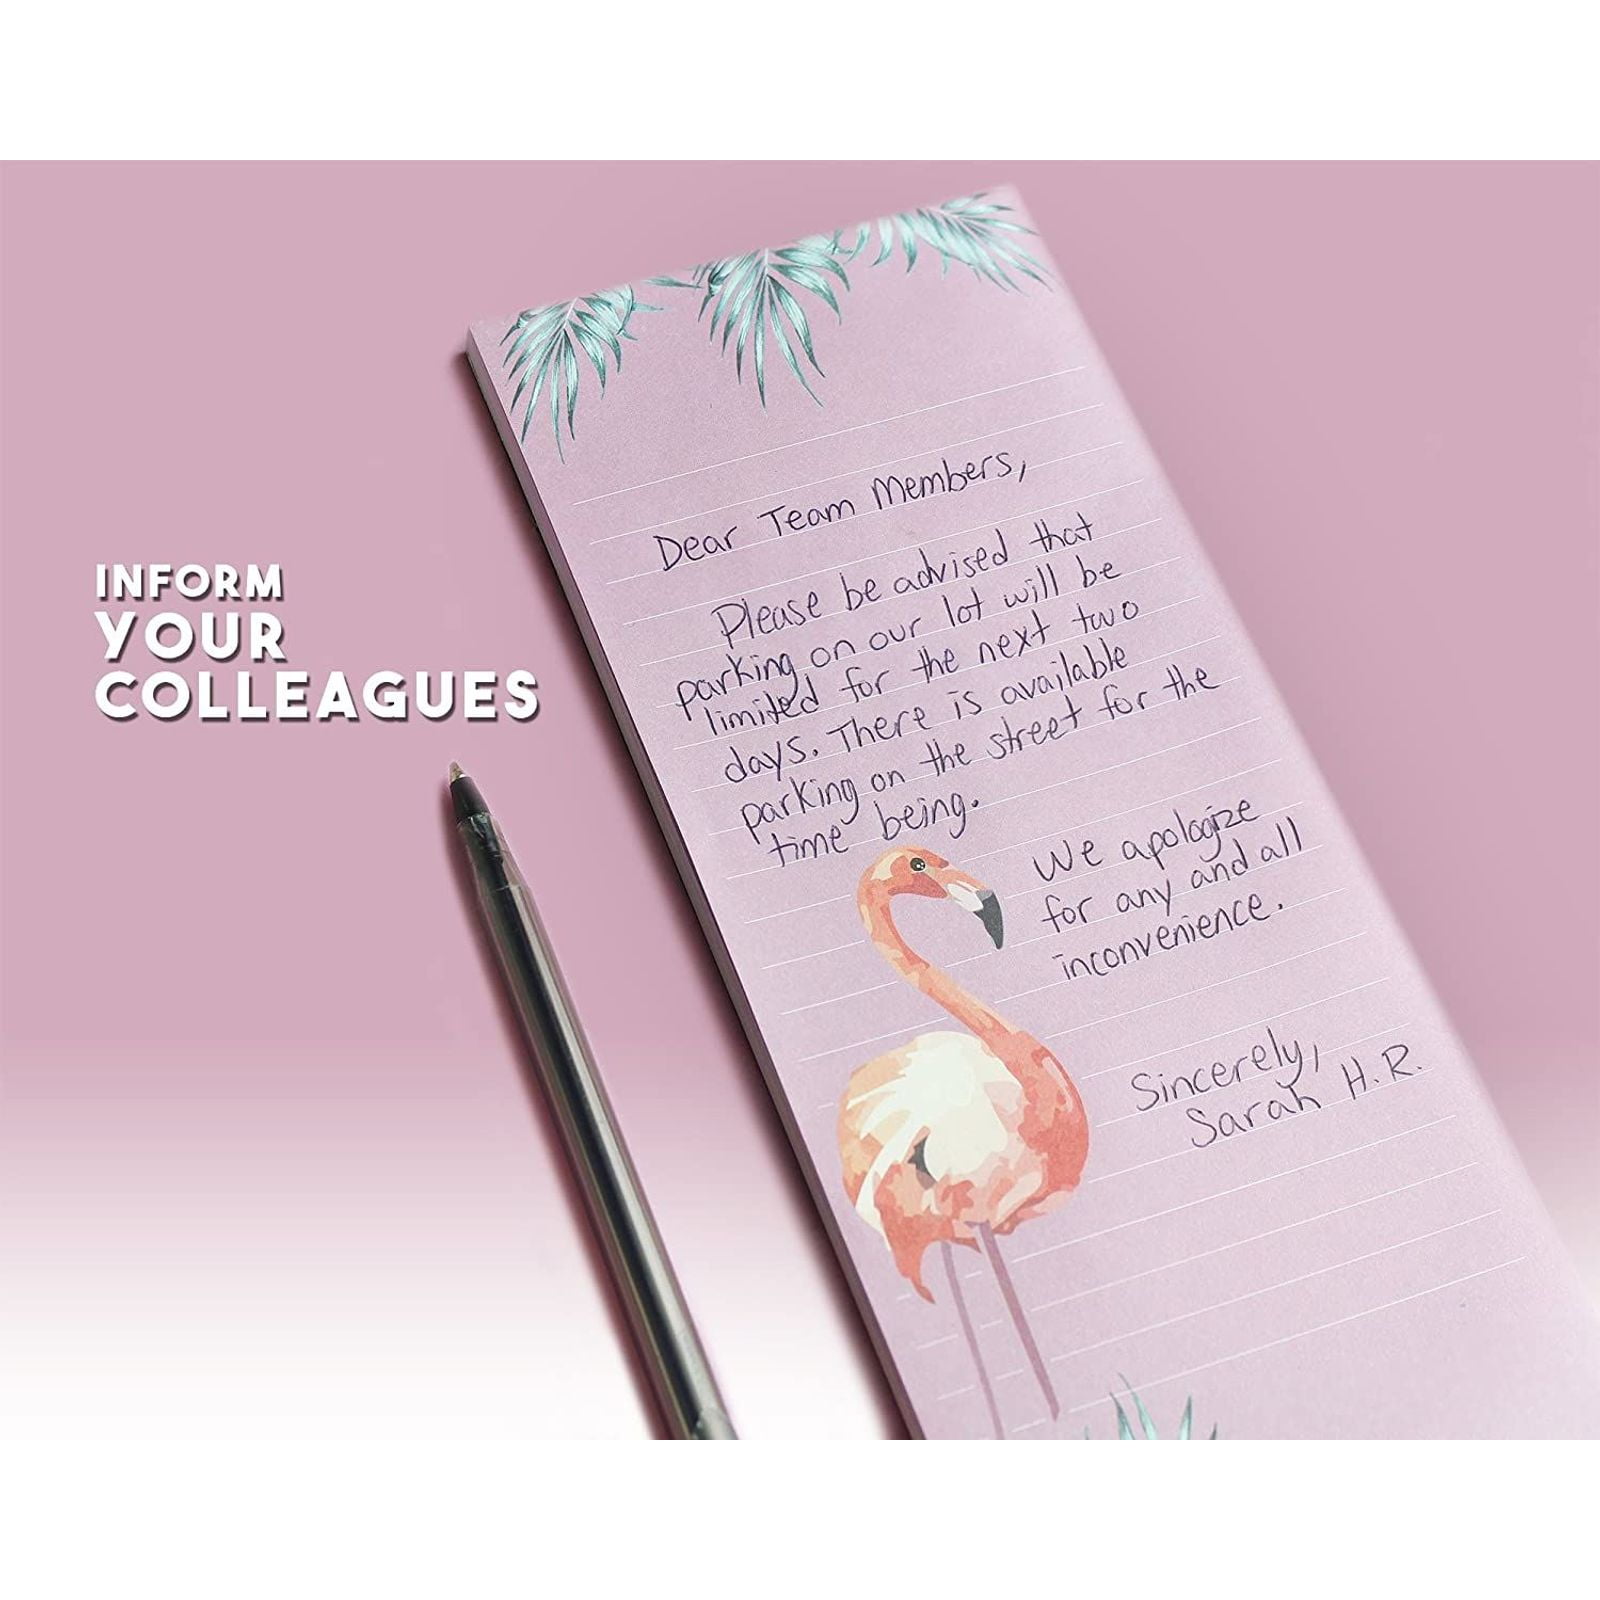 INFORM
YOUR
COLLEAGUES
Dear Team Members,
Please be advised that
parking on our lot will be
limited for the next two
days. There is available
parking on the street for the
time being.
We apologize
for any and all
inconvenience.
Sincerely,
Sarah H.R.